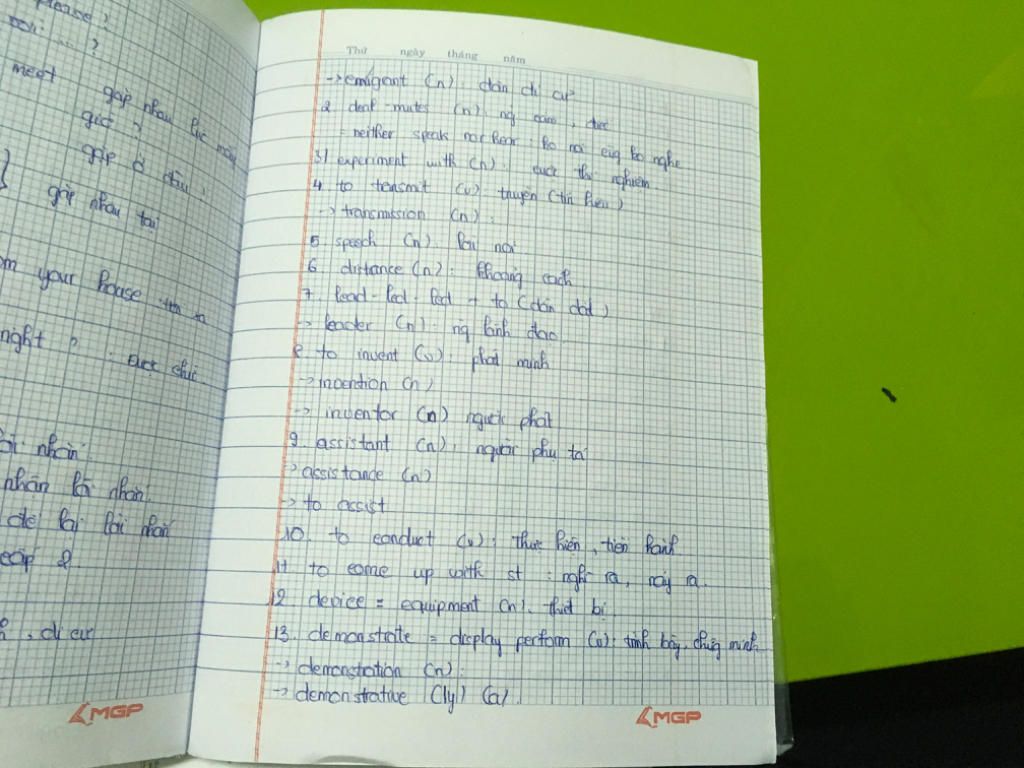 please?
meet
gặp nhau lúc mấy
giờ?
gặp ở đâu?
gặp nhau tại
your house
night?
nhắn
nhắn lời nhắn
để lại lời nhắn
cấp 2
, di cư
MGP
Thứ ngày tháng năm
-> emigant (n): dân di cư
2. deaf-mutes (n): ng câm, điếc
= neither speak nor hear: ko nói cũg ko nghe
3/ experiment with (n): cuộc thí nghiệm
4. to transmit (v) truyền (tín hiệu)
-> transmission (n):
5. speech (n). lời nói
6. distance (n): khoảng cách
7. lead-led-led + to (dẫn dắt)
-> leader (n): ng lãnh đạo
8. to invent (v): phát minh
-> invention (n)
-> inventor (n) người phát
9. assistant (n): người phụ tá
-> assistance (n)
-> to assist
10. to conduct (v): thực hiện, tiến hành
11. to come up with st: nghĩ ra, nảy ra.
12. device = equipment (n). thiết bị
13. demonstrate = display perform (v): trình bày, chứg minh
-> demonstration (n):
-> demonstrative (ly) (a).
MGP